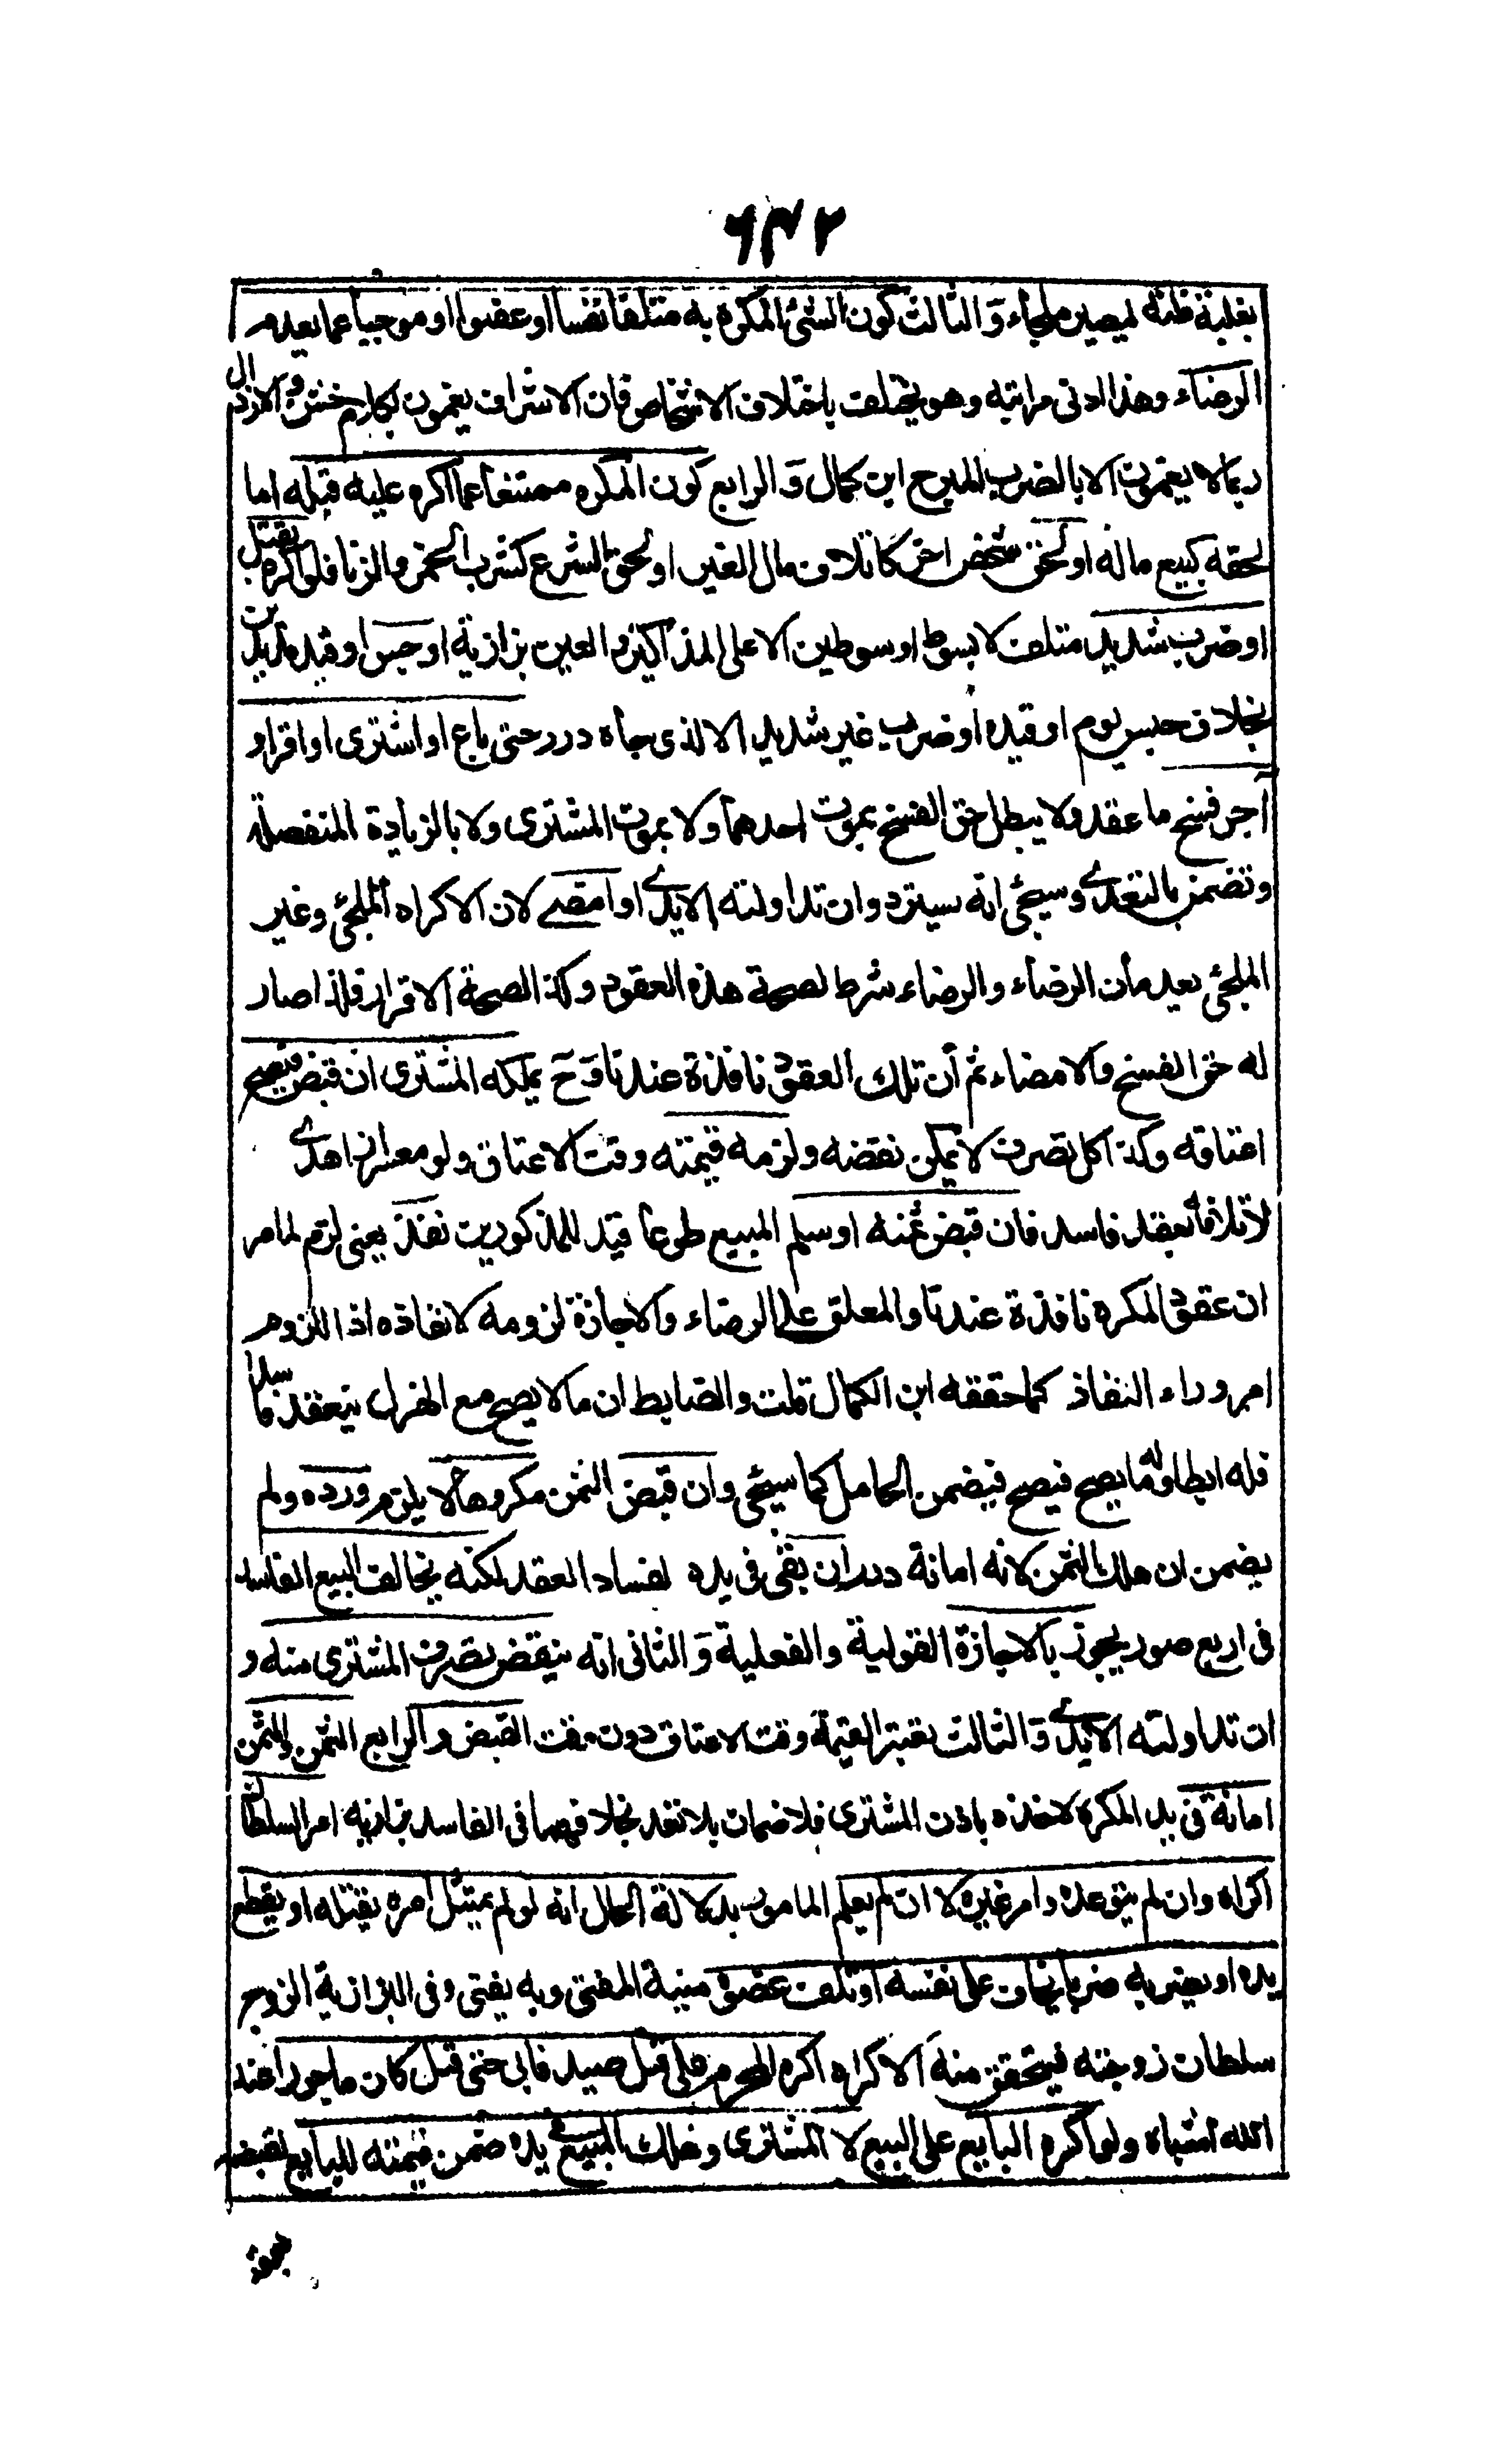 ٦٣٢
بغلبة ظنه ليصير ملجاء وَ الثالث كون الشئ المكره به متلفا نفسا او عضوا او موجبا غما يعدم
الرضاء وهذا ادنى مراتبه وهو يختلف باختلاف الاشخاص فان الاشراف يغمون بكلام خشن و الارذال
ربما لا يغمون الا بالضرب المبرح ابن كمال وَ الرابع كون المكره ممتنعا عما اكره عليه قبله اما
لحقه كبيع ماله او لحق شخص اخر كاتلاف مال الغير او لحق الشرع كشرب الخمر والزنا فلو اكره بقتل
او ضرب شديد متلف لا بسوط او سوطين الا على المذاكير والعين بزازية او حبس او قيد مديدين
بخلاف حبس يوم او قيده او ضرب غير شديد الا لذى جاه درر حتى باع او اشترى او اقر او
آجر فسخ ما عقد ولا يبطل حق الفسخ بموت احدهما ولا بموت المشترى ولا بالزيادة المنفصلة
وتضمن بالتعدى وسيجئ انه يسترد وان تداولته الايدى او امضى لان الاكراه الملجئ وغير
الملجئ يعدمان الرضاء والرضاء شرط لصحة هذه العقود وكذا لصحة الاقرار فلذا صار
له حق الفسخ والامضاء ثم أن تلك العقود نافذة عندنا وَ حَ يملكه المشترى ان قبض فيصح
اعتاقه وكذا كل تصرف لا يمكن نقضه ولزمه قيمته وقت الاعتاق ولو معسرا زاهدى
لاتلافه بعقد فاسد فان قبض ثمنه او سلم المبيع طوعا قيد للمذكورين نفذ يعنى لزم لما مر
ان عقود المكره نافذة عندنا والمعلق على الرضاء والاجازة لزومه لا نفاذه اذ اللزوم
امر وراء النفاذ كما حققه ابن الكمال قلت والضابط ان ما لا يصح مع الهزل ينعقد فاسدا
فله ابطاله وما يصح فيصح فيضمن الحامل كما سيجئ وان قبض الثمن مكرها لا يلزم ورده ولم
يضمن ان هلك الثمن لانه امانة درر ان بقى فى يده لفساد العقد لكنه يخالف البيع الفاسد
فى اربع صور يجوز بالاجازة القولية والفعلية وَ الثانى انه ينقض تصرف المشترى منه و
ان تداولته الايدى وَ الثالث تعتبر القيمة وقت الاعتاق دون وقت القبض و الرابع الثمن والمثمن
امانة فى يد المكره لاخذه باذن المشترى فلا ضمان بلا تعد بخلافهما فى الفاسد بزازيه امر السلطان
اكراه وان لم يتوعده وامر غيره لا ان لم يعلم المامور بدلالة الحال انه لو لم يمتثل امره يقتله او يقطع
يده او يضربه ضربا يخاف على نفسه او تلف عضوه منية المفتى وبه يفتى وفى البزازية الزوج
سلطان زوجته فيتحقق منه الاكراه اكره المحرم على قتل صيد فابى حتى قتل كان ماجورا عند
الله اشباه ولو اكره البايع على البيع لا المشترى وهلك المبيع فى يده ضمن قيمته للبايع لقبضه